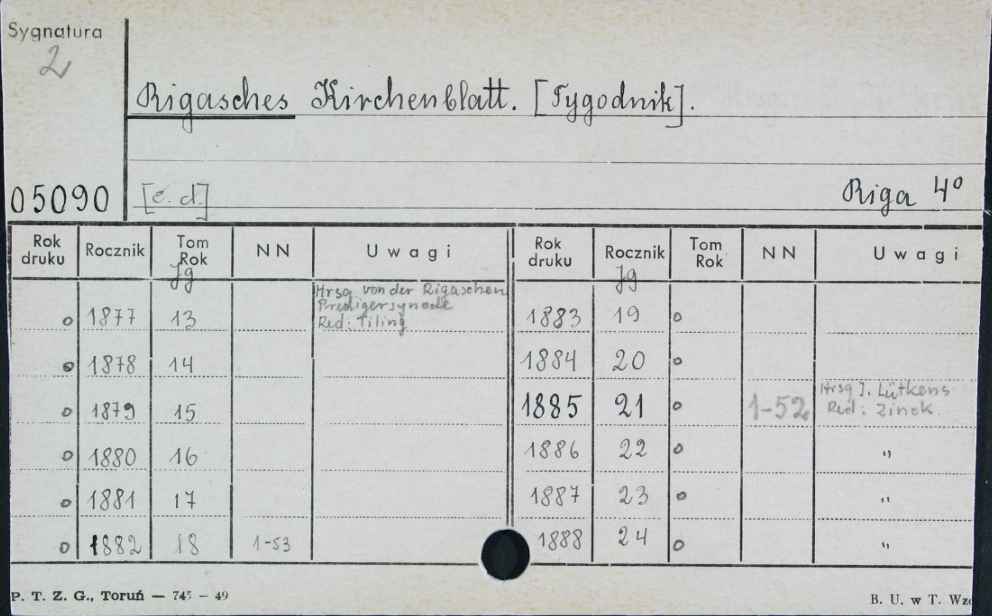 Sygnatura
2
Rigasches Kirchenblatt. [Tygodnik].
05090 [c. d.] Riga 4º
Rok druku Rocznik Tom Rok NN Uwagi Rok druku Rocznik Tom Rok NN Uwagi
Jg Jg
Hrsg von der Rigaschen
Predigersynode
o 1877 13 Red: Tiling 1883 19 o
o 1878 14 1884 20 o
Hrsg J. Lütkens
o 1879 15 1885 21 o 1-52 Red: Zinck.
o 1880 16 1886 22 o "
o 1881 17 1887 23 o "
o 1882 18 1-53 1888 24 o "
P. T. Z. G., Toruń — 745 - 49 B. U. w T. Wzó